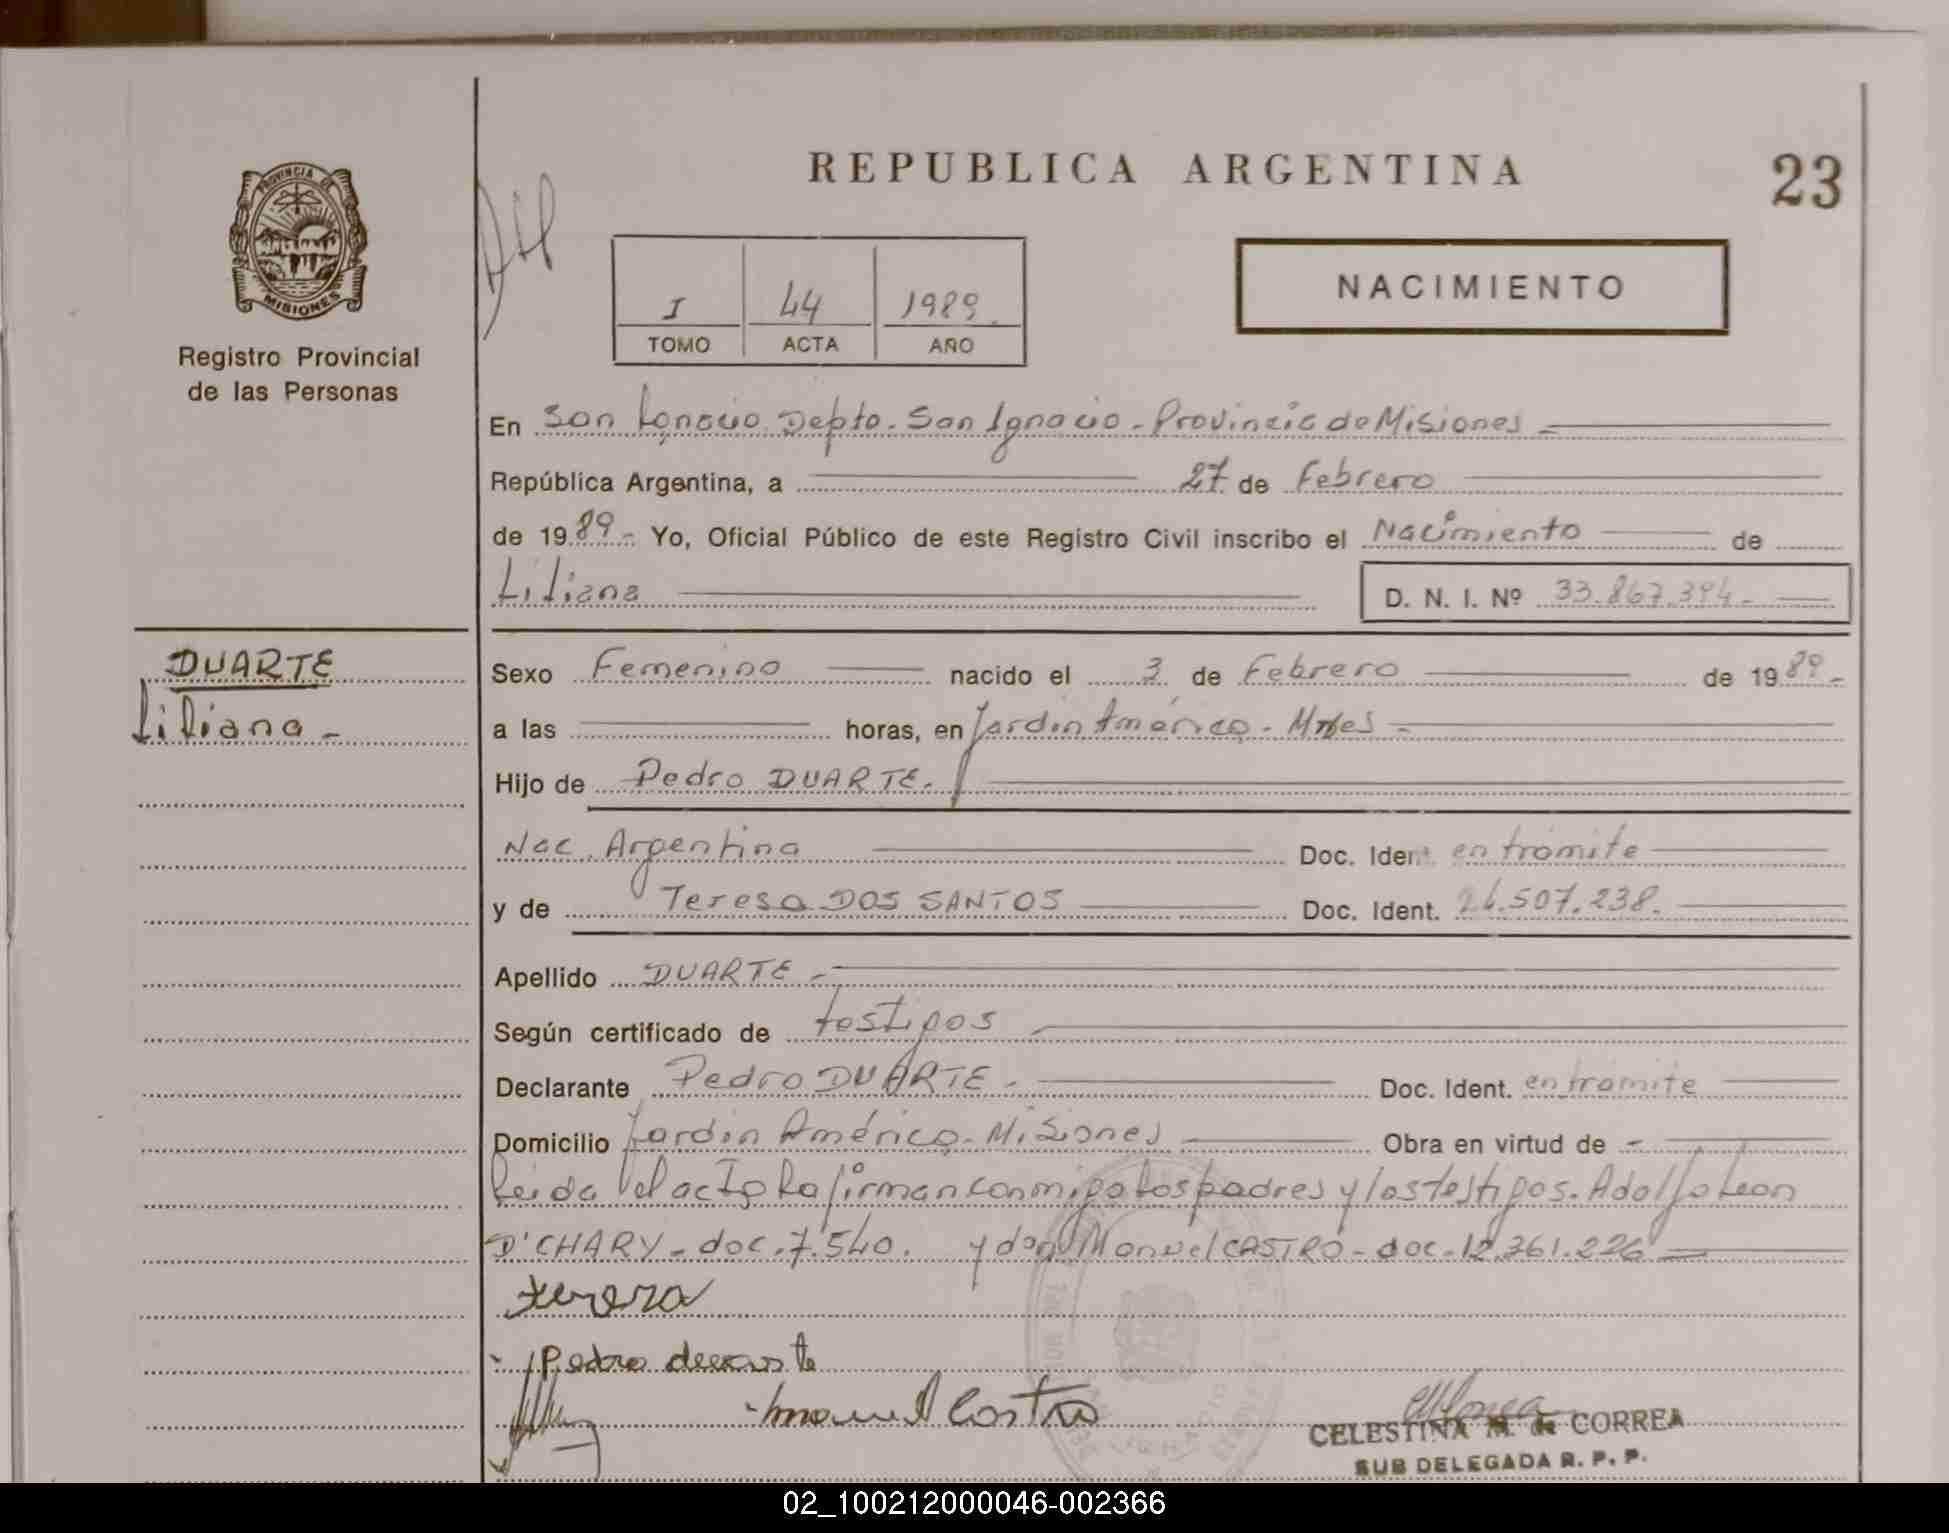 REPUBLICA ARGENTINA
23
PROVINCIA DE
MISIONES
Registro Provincial
de las Personas
I 44 1989
TOMO ACTA AÑO
NACIMIENTO
En San Ignacio Depto. San Ignacio - Provincia de Misiones -
República Argentina, a 27 de Febrero
de 1989.- Yo, Oficial Público de este Registro Civil inscribo el Nacimiento de
Liliana D. N. I. Nº 33.867.394.-
DUARTE
Liliana -
Sexo Femenino nacido el 3 de Febrero de 1989.-
a las horas, en Jardin América - Mnes -
Hijo de Pedro DUARTE.
Nac. Argentina Doc. Ident. en tramite
y de Teresa DOS SANTOS Doc. Ident. 24.507.238.
Apellido DUARTE -
Según certificado de testigos
Declarante Pedro DUARTE - Doc. Ident. en tramite
Domicilio Jardin América - Misiones Obra en virtud de -
Leida el acta la firman conmigo los padres y los testigos. Adolfo Leon
D'CHARY - doc. 7.540. y don Manuel CASTRO - doc. 12.361.226
teresa
Pedro duarte
manuel Castro
CELESTINA M. de CORREA
SUB DELEGADA R. P. P.
02_100212000046-002366